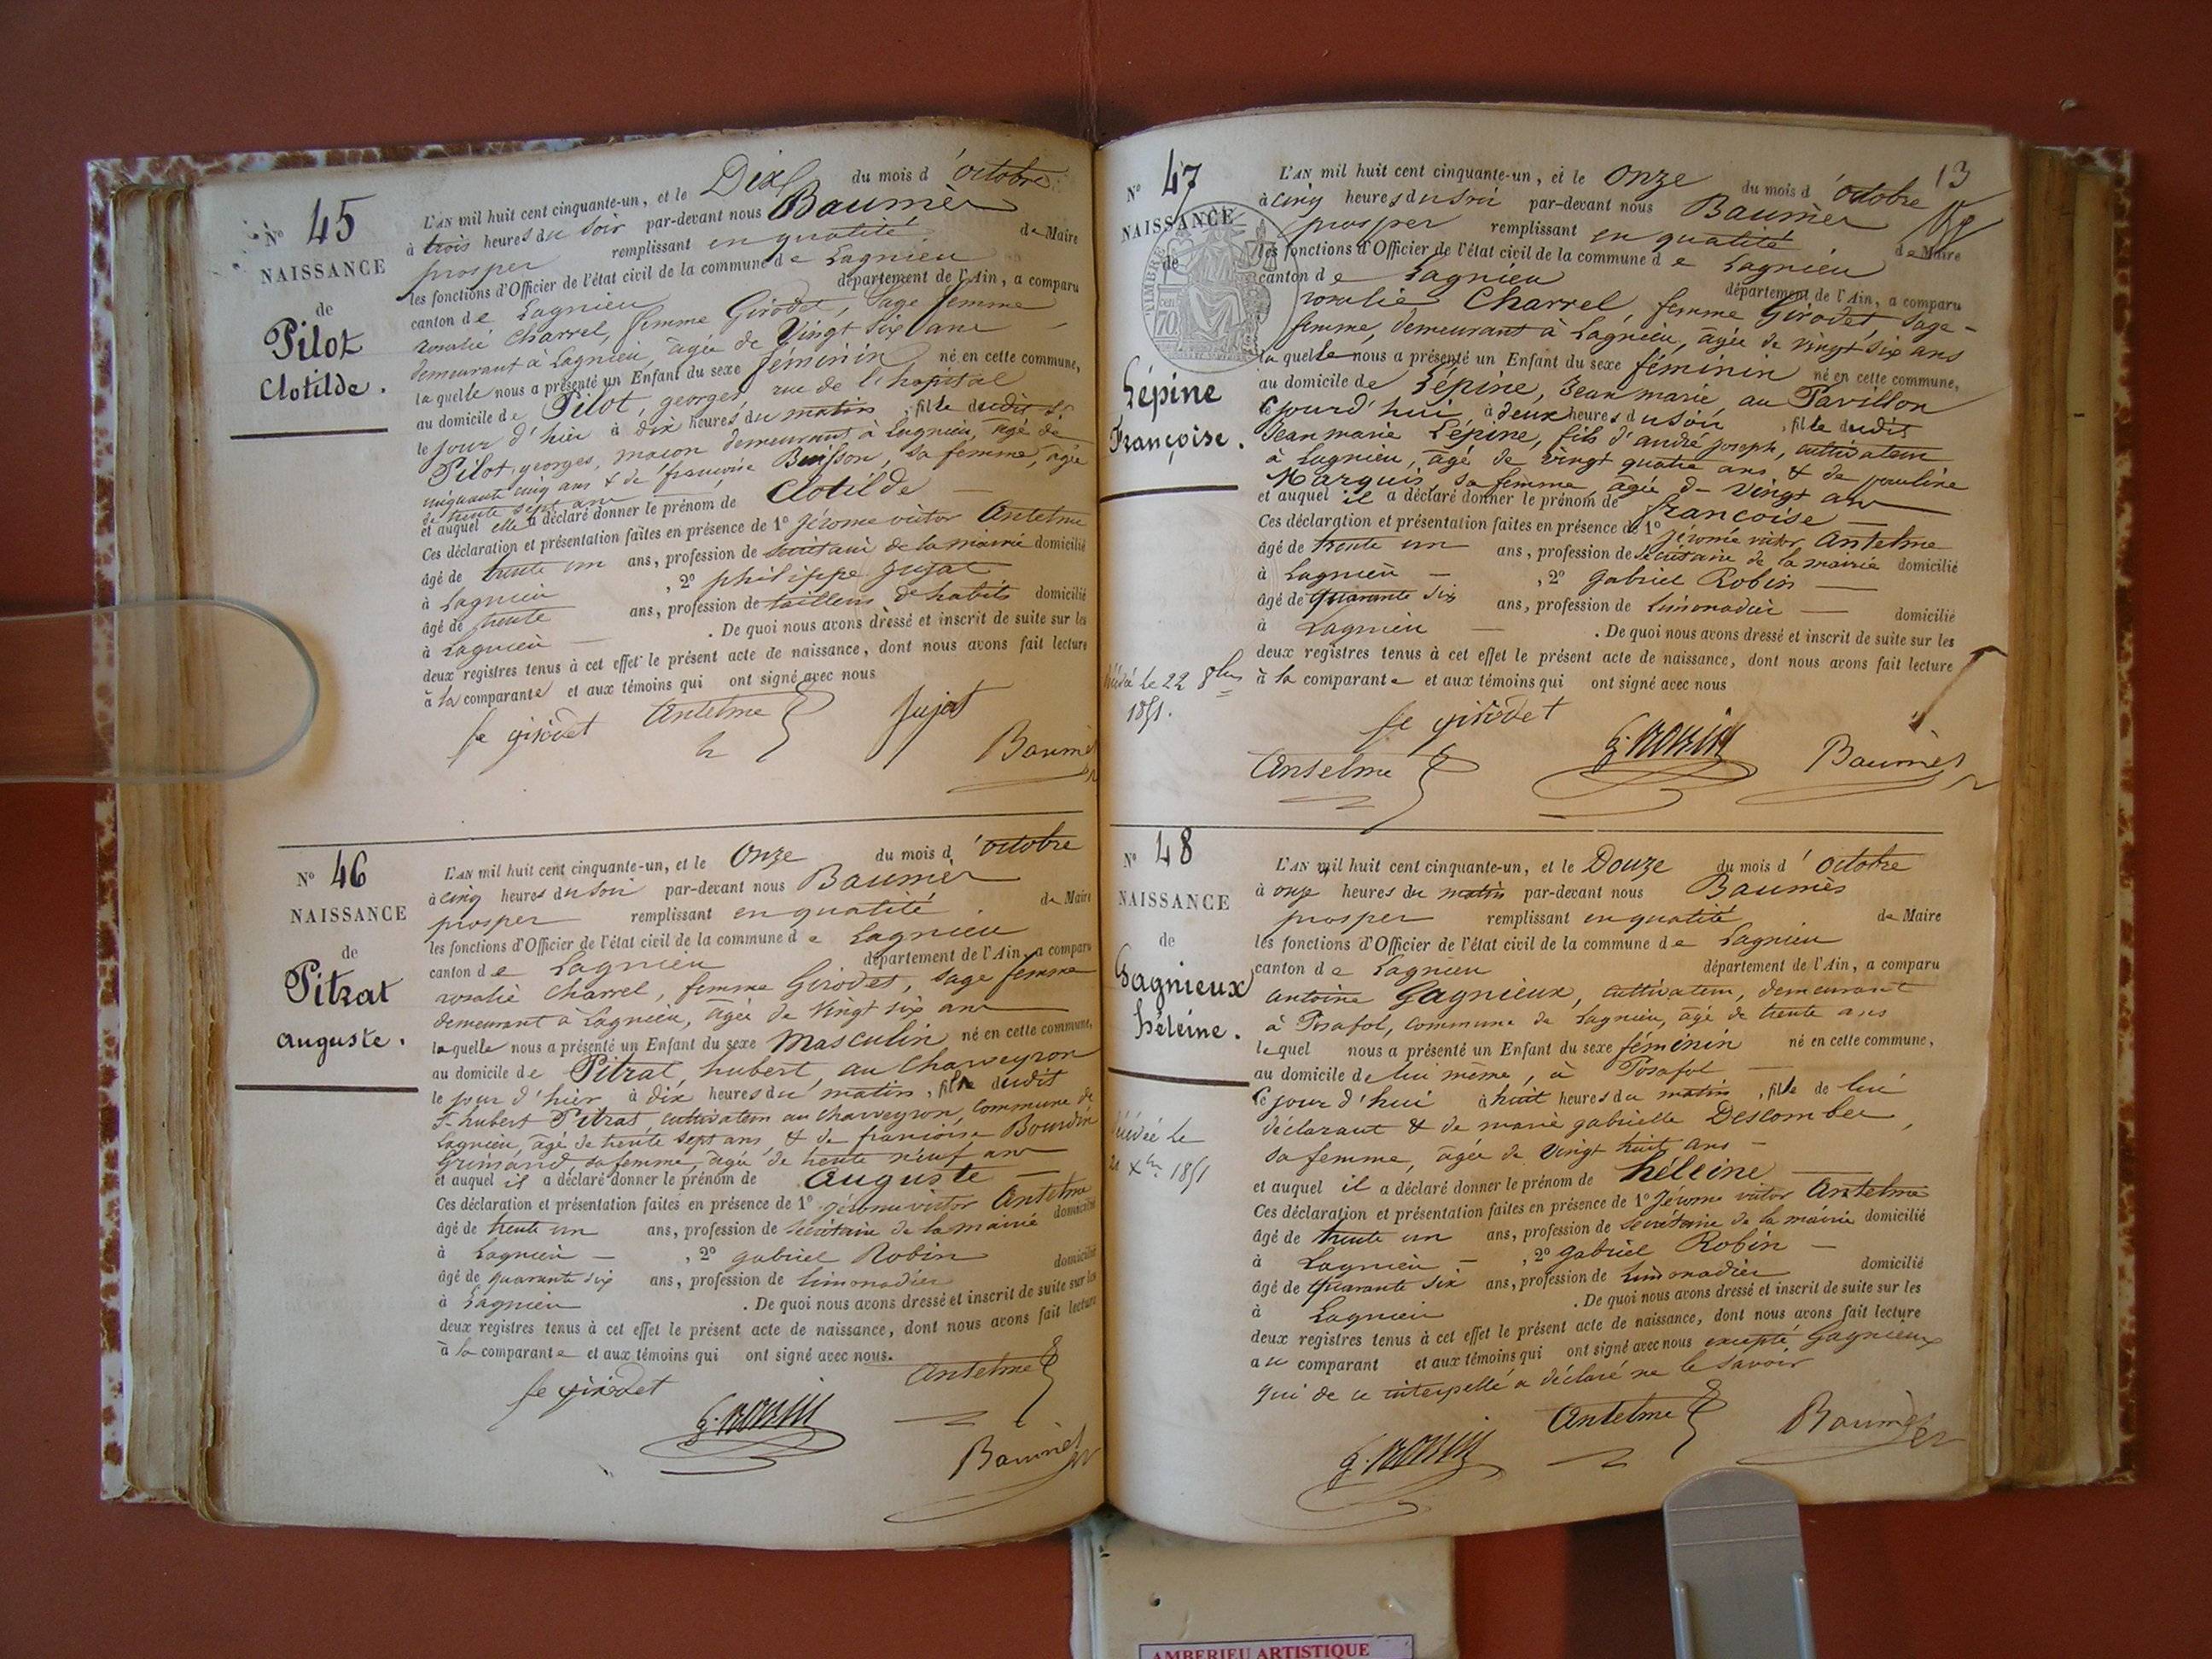 N° 45
NAISSANCE
de
Pilot
Clotilde.
L'AN mil huit cent cinquante-un, et le Dix du mois d'octobre
à trois heures du soir par-devant nous Baumès
prosper remplissant en qualité de Maire
les fonctions d'Officier de l'état civil de la commune de Lagnieu
canton de Lagnieu département de l'Ain, a comparu
rosalie Charrel, femme Girodet, sage femme
demeurant à Lagnieu, âgée de Vingt six ans
laquelle nous a présenté un Enfant du sexe féminin né en cette commune,
au domicile de Pilot, georges, rue de l'hopital
le jour d'hier à dix heures du matin, fille dudit
Pilot, georges, macon demeurant à Lagnieu, âgé de
cinquante cinq ans & de françoise Buisson, sa femme, âgée
de trente sept ans
et auquel elle a déclaré donner le prénom de Clotilde
Ces déclaration et présentation faites en présence de 1° Jérome victor Antelme
âgé de trente un ans, profession de secrétaire de la mairie domicilié
à Lagnieu, 2° philippe Jujat
âgé de trente ans, profession de tailleur d'habits domicilié
à Lagnieu. De quoi nous avons dressé et inscrit de suite sur les
deux registres tenus à cet effet le présent acte de naissance, dont nous avons fait lecture
à la comparante et aux témoins qui ont signé avec nous
fe girodet Antelme Jujat
Baumès
N° 46
NAISSANCE
de
Pitrat
auguste.
L'AN mil huit cent cinquante-un, et le Onze du mois d'octobre
à cinq heures du soir par-devant nous Baumès
prosper remplissant en qualité de Maire
les fonctions d'Officier de l'état civil de la commune de Lagnieu
canton de Lagnieu département de l'Ain, a comparu
rosalie Charrel, femme Girodet, sage femme
demeurant à Lagnieu, âgée de Vingt six ans
laquelle nous a présenté un Enfant du sexe Masculin né en cette commune,
au domicile de Pitrat, hubert, au Charveyron
le jour d'hier à dix heures du matin, fils dudit
hubert Pitrat cultivateur au Charveyron, commune de
Lagnieu, âgé de trente sept ans, & de françoise Bourdin
Grimand sa femme, âgée de trente neuf ans
et auquel il a déclaré donner le prénom de Auguste
Ces déclaration et présentation faites en présence de 1° jérome victor Antelme
âgé de trente un ans, profession de secrétaire de la mairie domicilié
à Lagnieu, 2° gabriel Robin
âgé de quarante six ans, profession de limonadier domicilié
à Lagnieu. De quoi nous avons dressé et inscrit de suite sur les
deux registres tenus à cet effet le présent acte de naissance, dont nous avons fait lecture
à la comparante et aux témoins qui ont signé avec nous.
fe girodet Antelme
g. Robin
Baumès
13
N° 47
NAISSANCE
de
TIMBRE
70
Lépine
Françoise.
décédé le 22 8bre
1851.
L'AN mil huit cent cinquante-un, et le Onze du mois d'octobre
à cinq heures du soir par-devant nous Baumès
prosper remplissant en qualité de Maire
les fonctions d'Officier de l'état civil de la commune de Lagnieu
canton de Lagnieu département de l'Ain, a comparu
rosalie Charrel, femme Girodet, sage-
femme, demeurant à Lagnieu, âgée de vingt six ans
laquelle nous a présenté un Enfant du sexe féminin né en cette commune,
au domicile de Lépine, Jean marie, au Pavillon
ce jourd'hui à deux heures du soir, fille dudit
Jean marie Lépine, fils d'andré joseph, cultivateur
à Lagnieu, âgé de vingt quatre ans & de pauline
Marquis, sa femme, âgée de Vingt ans
et auquel il a déclaré donner le prénom de françoise
Ces déclaration et présentation faites en présence de 1° jérome victor Antelme
âgé de trente un ans, profession de secrétaire de la mairie domicilié
à Lagnieu, 2° gabriel Robin
âgé de quarante six ans, profession de limonadier domicilié
à Lagnieu. De quoi nous avons dressé et inscrit de suite sur les
deux registres tenus à cet effet le présent acte de naissance, dont nous avons fait lecture
à la comparante et aux témoins qui ont signé avec nous
fe girodet
Antelme g. Robin Baumès
N° 48
NAISSANCE
de
Gagnieux
héleine.
décédée le
Xbre 1851
L'AN mil huit cent cinquante-un, et le Douze du mois d'octobre
à onze heures du matin par-devant nous Baumès
prosper remplissant en qualité de Maire
les fonctions d'Officier de l'état civil de la commune de Lagnieu
canton de Lagnieu département de l'Ain, a comparu
antoine Gagnieux, cultivateur, demeurant
à Posafol, commune de Lagnieu, âgé de trente ans
lequel nous a présenté un Enfant du sexe féminin né en cette commune,
au domicile de lui même, à Posafol
ce jour d'hui à huit heures du matin, fille de lui
déclarant & de marie gabrielle Descombes,
sa femme, âgée de vingt huit ans
et auquel il a déclaré donner le prénom de héleine
Ces déclaration et présentation faites en présence de 1° Jérome victor Antelme
âgé de trente un ans, profession de secrétaire de la mairie domicilié
à Lagnieu, 2° gabriel Robin
âgé de quarante six ans, profession de limonadier domicilié
à Lagnieu. De quoi nous avons dressé et inscrit de suite sur les
deux registres tenus à cet effet le présent acte de naissance, dont nous avons fait lecture
au comparant et aux témoins qui ont signé avec nous excepté Gagnieux
qui de ce interpellé a déclaré ne le savoir
Antelme Baumès
g. Robin
AMBERIEU ARTISTIQUE